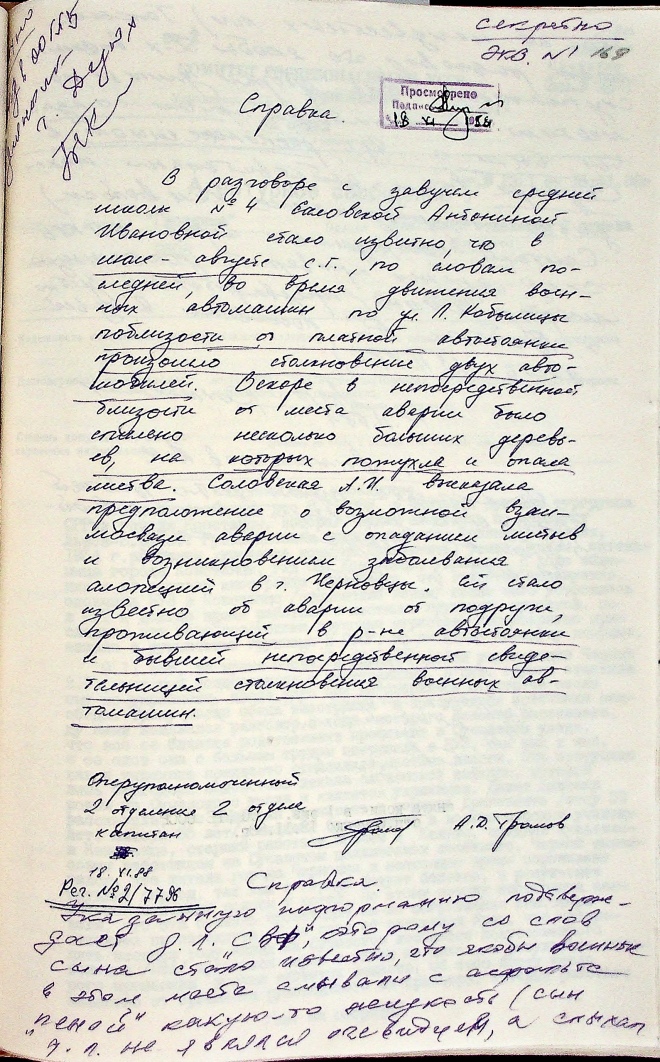 секретно
экз. №1 169
Справка.
Просмотрено
18 XI 1988
В разговоре с завучем средней
школы №4 Соловской Антониной
Ивановной стало известно, что в
июле - августе с.г., по словам по-
следней, во время движения воен-
ных автомашин по ул. Л. Кобылицы
поблизости от платной автостоянки
произошло столкновение двух авто-
мобилей. Вскоре в непосредственной
близости от места аварии было
спилено несколько больших деревь-
ев, на которых пожухла и опала
листва. Соловская А.И. высказала
предположение о возможной взаи-
мосвязи аварии с опаданием листьев
и возникновением заболевания
алопецией в г. Черновцы. Ей стало
известно об аварии от подруги,
проживающей в р-не автостоянки
и бывшей непосредственной свиде-
тельницей столкновения военных ав-
томашин.
Оперуполномоченный
2 отделение 2 отдела
капитан А.Д. Громов
18.XI.88
Рег. №2/7796
Справка.
Указанную информацию подтверж-
дает д.л. которому со слов
сына стало известно, что якобы военные
в этом месте смывали с асфальта
"пеной" какую-то жидкость (сын
д.л. не являлся очевидцем, а слыхал